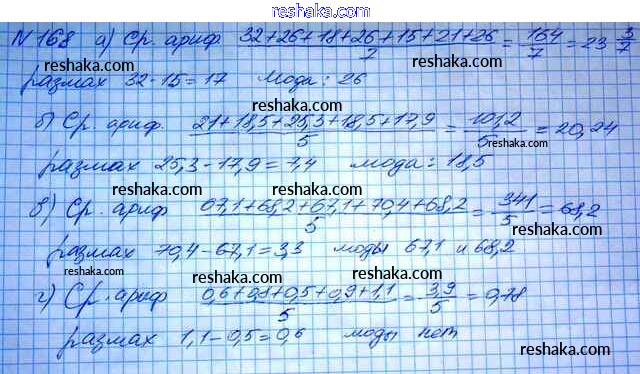 reshaka.com
№168 а) Ср. ариф. (32+26+18+26+15+21+26)/7 = 164/7 = 23 3/7
reshaka.com
размах 32-15=17 Мода: 26
reshaka.com
reshaka.com
б) Ср. ариф. (21+18,5+25,3+18,5+17,9)/5 = 101,2/5 = 20,24
reshaka.com
размах 25,3-17,9=7,4 мода: 18,5
reshaka.com
reshaka.com
в) Ср. ариф (67,1+68,2+67,1+70,4+68,2)/5 = 341/5 = 68,2
reshaka.com
размах 70,4-67,1=3,3 моды 67,1 и 68,2
reshaka.com
reshaka.com
г) Ср. ариф (0,6+0,8+0,5+0,9+1,1)/5 = 3,9/5 = 0,78
reshaka.com
размах 1,1-0,5=0,6 моды нет
reshaka.com
reshaka.com